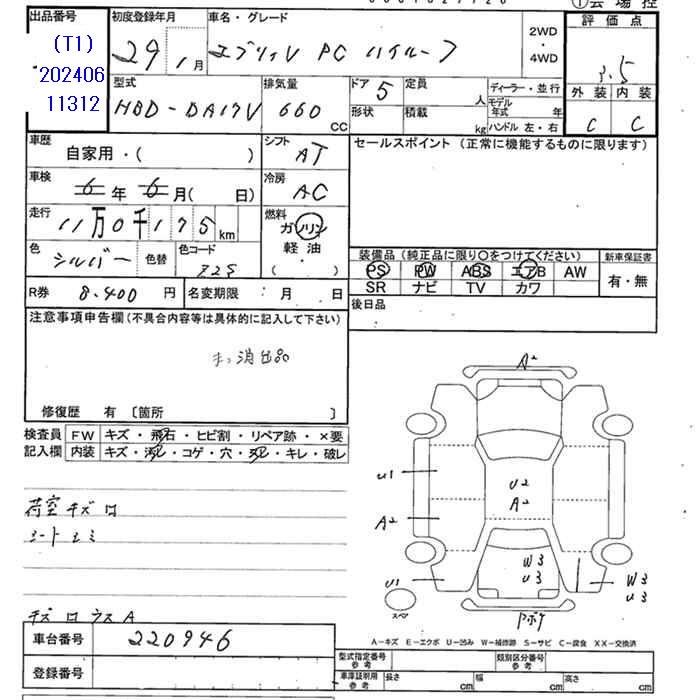 出品番号
(T1)
202406
11312
初度登録年月
29年1月
車名・グレード
エブリィV PC ハイルーフ
2WD
・
4WD
評価点
3.5
型式
HBD-DA17V
排気量
660 CC
ドア 5
形状
定員 人
積載 kg
ディーラー・並行
モデル年式 年
ハンドル 左・右
外装 内装
C C
車歴
自家用・( )
シフト
AT
セールスポイント (正常に機能するものに限ります)
車検
6年 6月( 日)
冷房
AC
走行
11万0千175km
燃料
ガソリン
軽油
・
( )
色
シルバー
色替
色コード
Z2S
装備品 (純正品に限り○をつけてください)
新車保証書
PS PW ABS エアB AW
有・無
SR ナビ TV カワ
R券 8.400円
名変期限 : 月 日
後日品
注意事項申告欄(不具合内容等は具体的に記入して下さい)
消出品
修復歴 有 〔箇所 〕
検査員
記入欄
FW キズ・飛石・ヒビ割・リペア跡・×要
内装 キズ・汚レ・コゲ・穴・スレ・キレ・破レ
A2
U1
U2
A2
A2
W3
U3
U1
W3
U3
スペア
荷室キズロ
シートシミ
キズ ロ ウス A
A-キズ E-エクボ U-凹み W-補修跡 S-サビ C-腐食 XX-交換済
車台番号 220946
登録番号
型式指定番号
参考
類別区分番号
参考
車庫証明用
参考
長さ cm
幅 cm
高さ cm